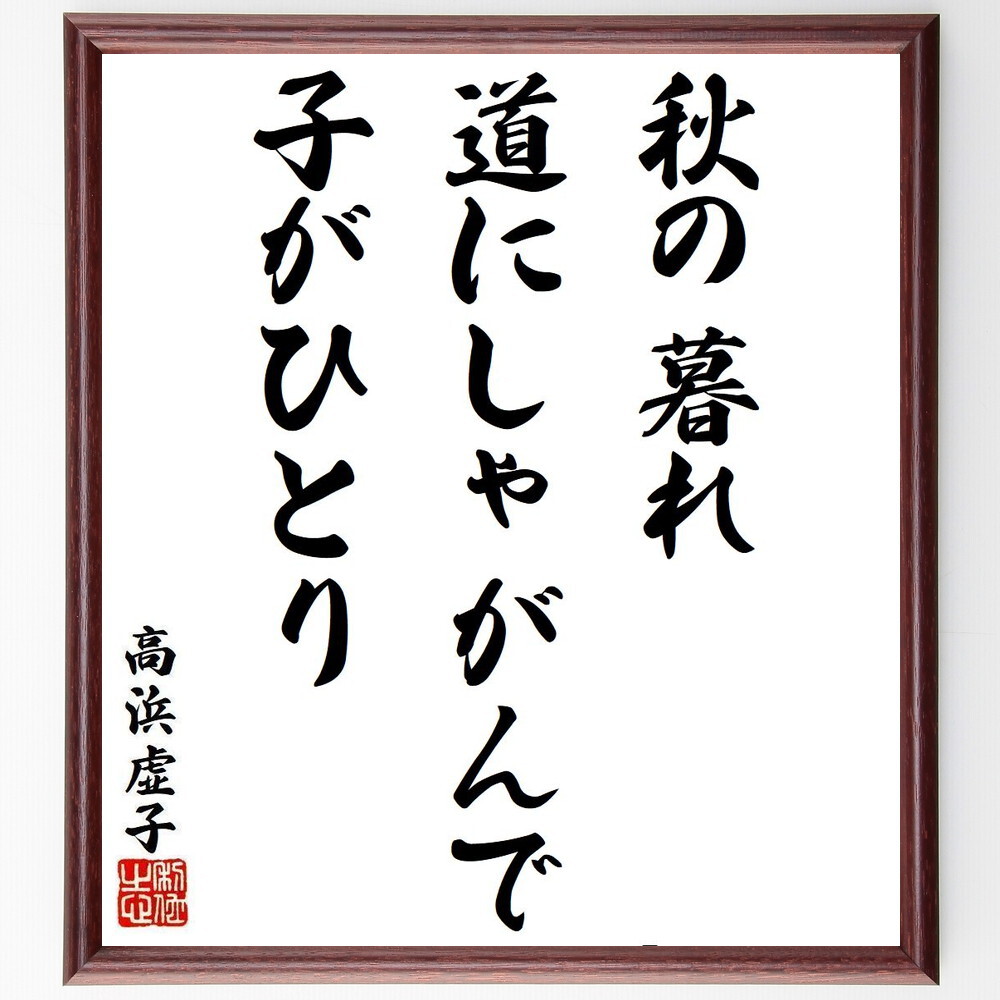 秋の 暮れ
道にしゃがんで
子がひとり
高浜虚子